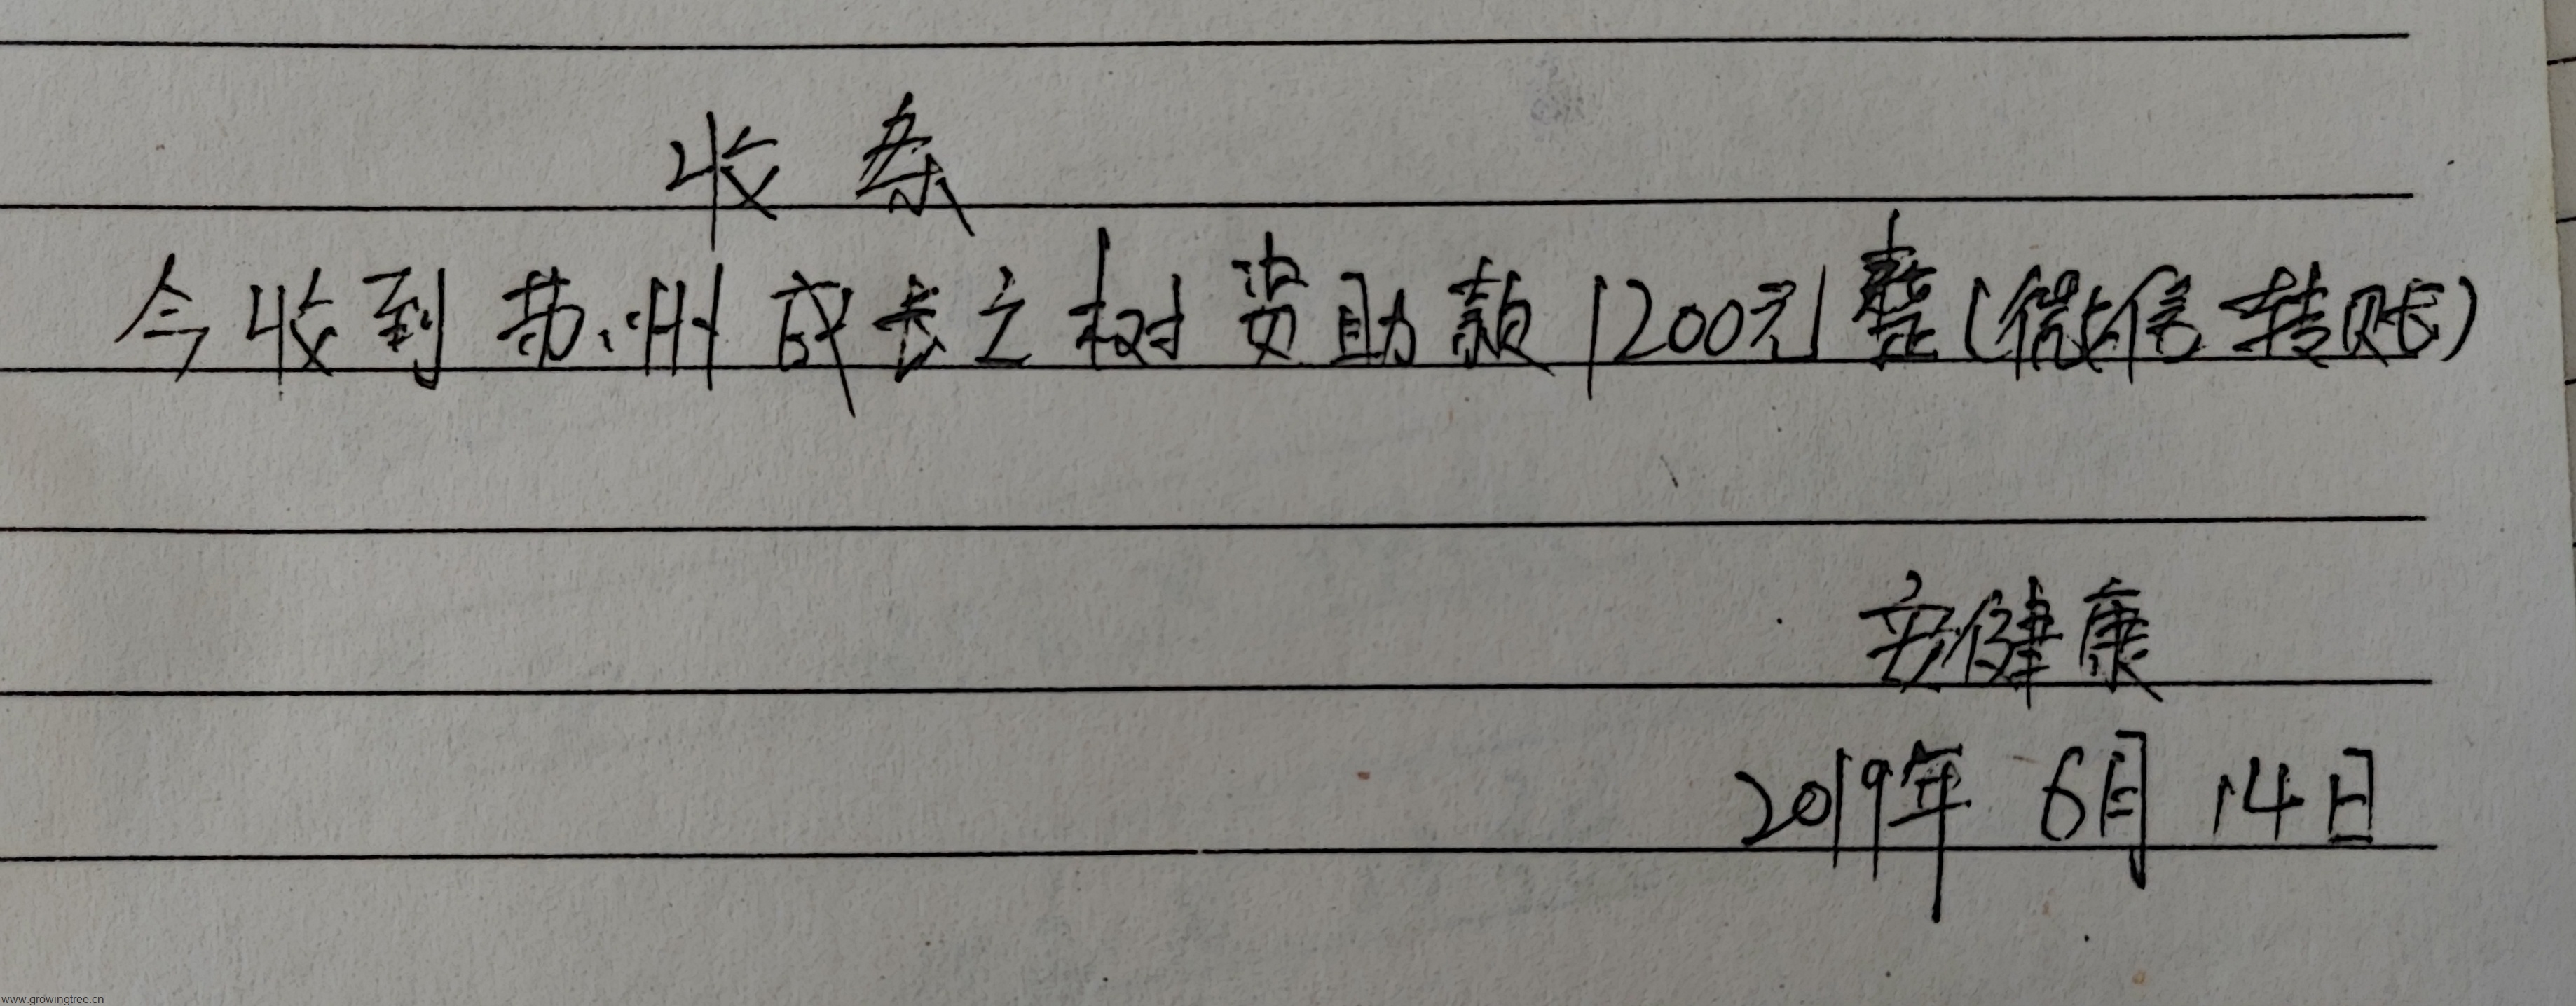 收条
今收到苏州成长之树资助款1200元整(微信转账)
安健康
2019年6月14日
www.growingtree.cn